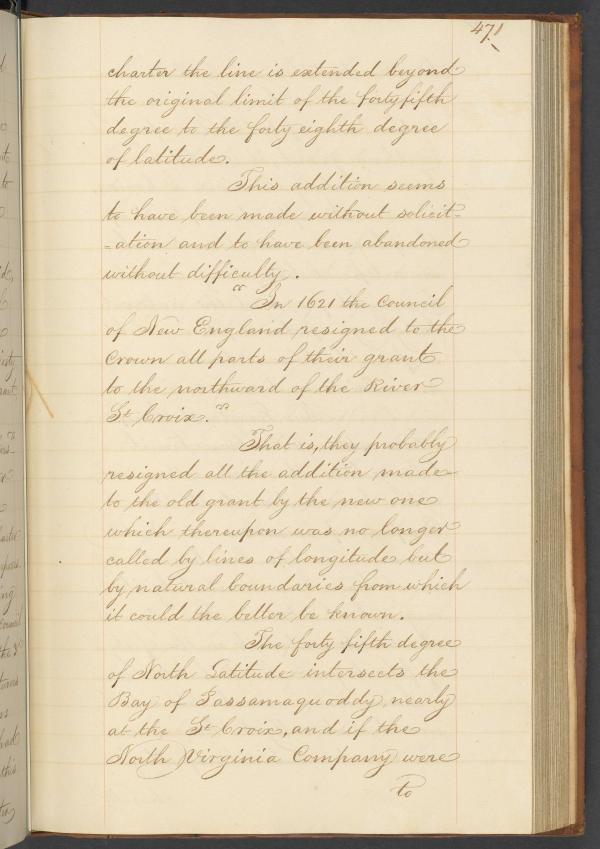 471
charter the line is extended beyond
the original limit of the forty fifth
degree to the forty eighth degree
of latitude.
This addition seems
to have been made without solicit-
-ation and to have been abandoned
without difficulty.
"In 1621 the Council
of New England resigned to the
Crown all parts of their grant
to the northward of the River
St Croix."
That is, they probably
resigned all the addition made
to the old grant by the new one
which thereupon was no longer
called by lines of longitude but
by natural boundaries from which
it could the better be known.
The forty fifth degree
of North Latitude intersects the
Bay of Passamaquoddy nearly
at the St Croix, and if the
North Virginia Company were
to